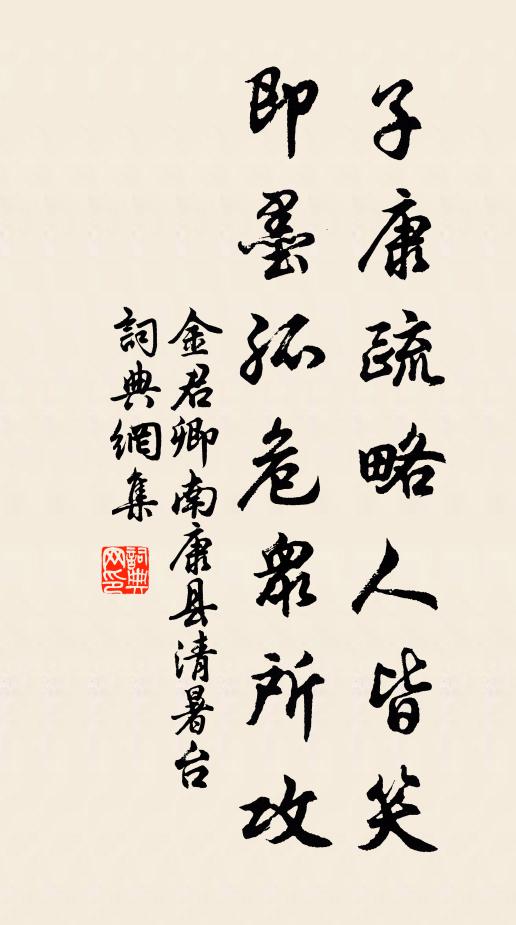 子康疏略人皆笑
即墨孤危衆所攻
金君卿南康县清暑台
詞典網集
詞典网印